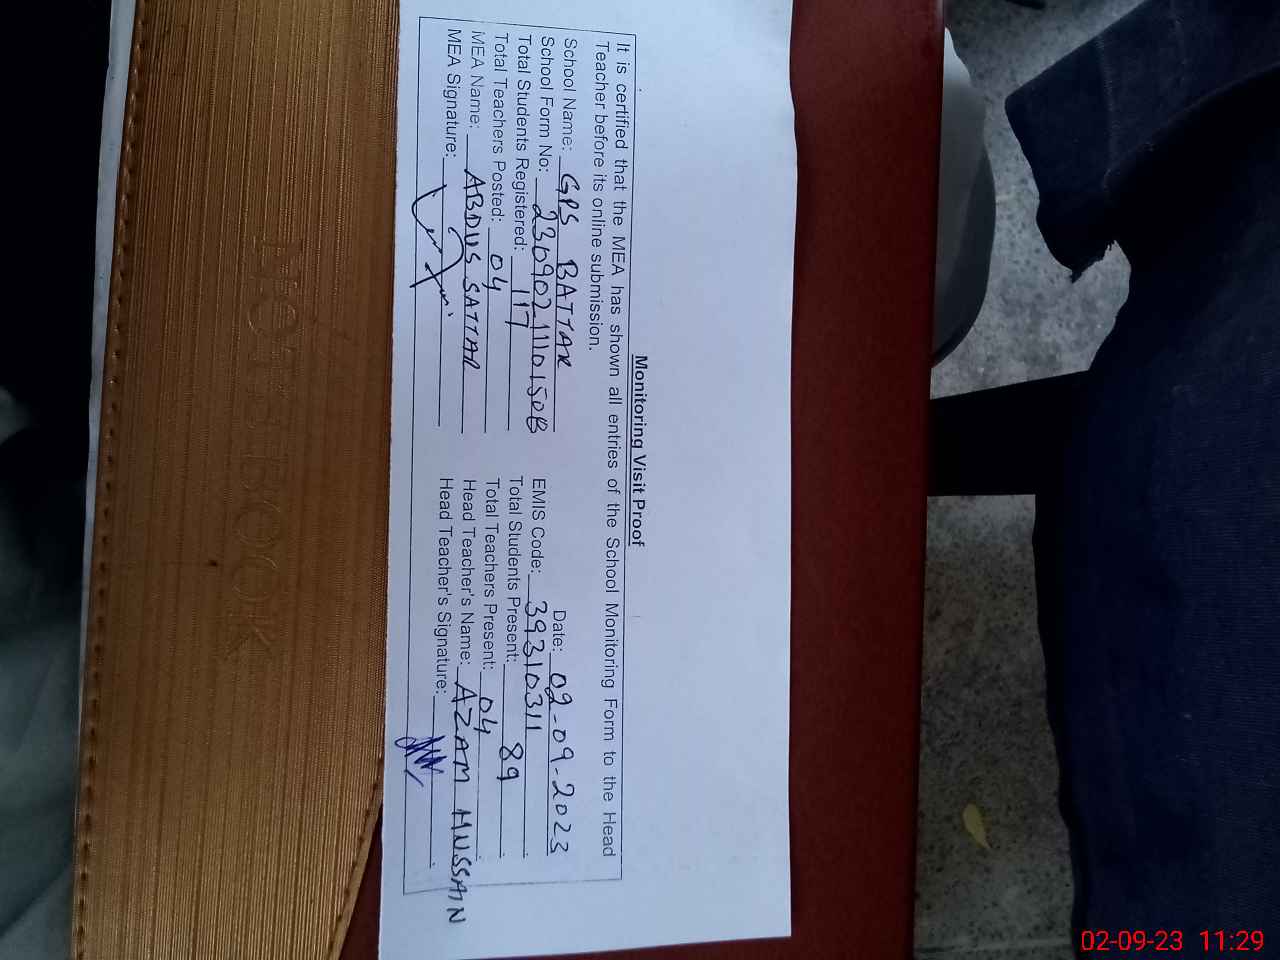 Monitoring Visit Proof
It is certified that the MEA has shown all entries of the School Monitoring Form to the Head
Teacher before its online submission.
Date: 02-09-2023
School Name: GPS BATTAR
School Form No: 230902111015OB
EMIS Code: 39310311
Total Students Registered: 117
Total Students Present: 89
Total Teachers Posted: 04
Total Teachers Present: 04
MEA Name: ABDUS SATTAR
Head Teacher's Name: AZAM HUSSAIN
MEA Signature:
Head Teacher's Signature:
NOTEBOOK
02-09-23 11:29